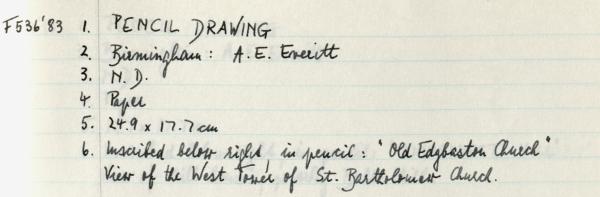 F536'83 1. PENCIL DRAWING
2. Birmingham: A.E. Everitt
3. N.D.
4. Paper
5. 24.9 x 17.7 cm
6. Inscribed below right, in pencil: "Old Edgbaston Church"
View of the West Tower of St. Bartholomew Church.